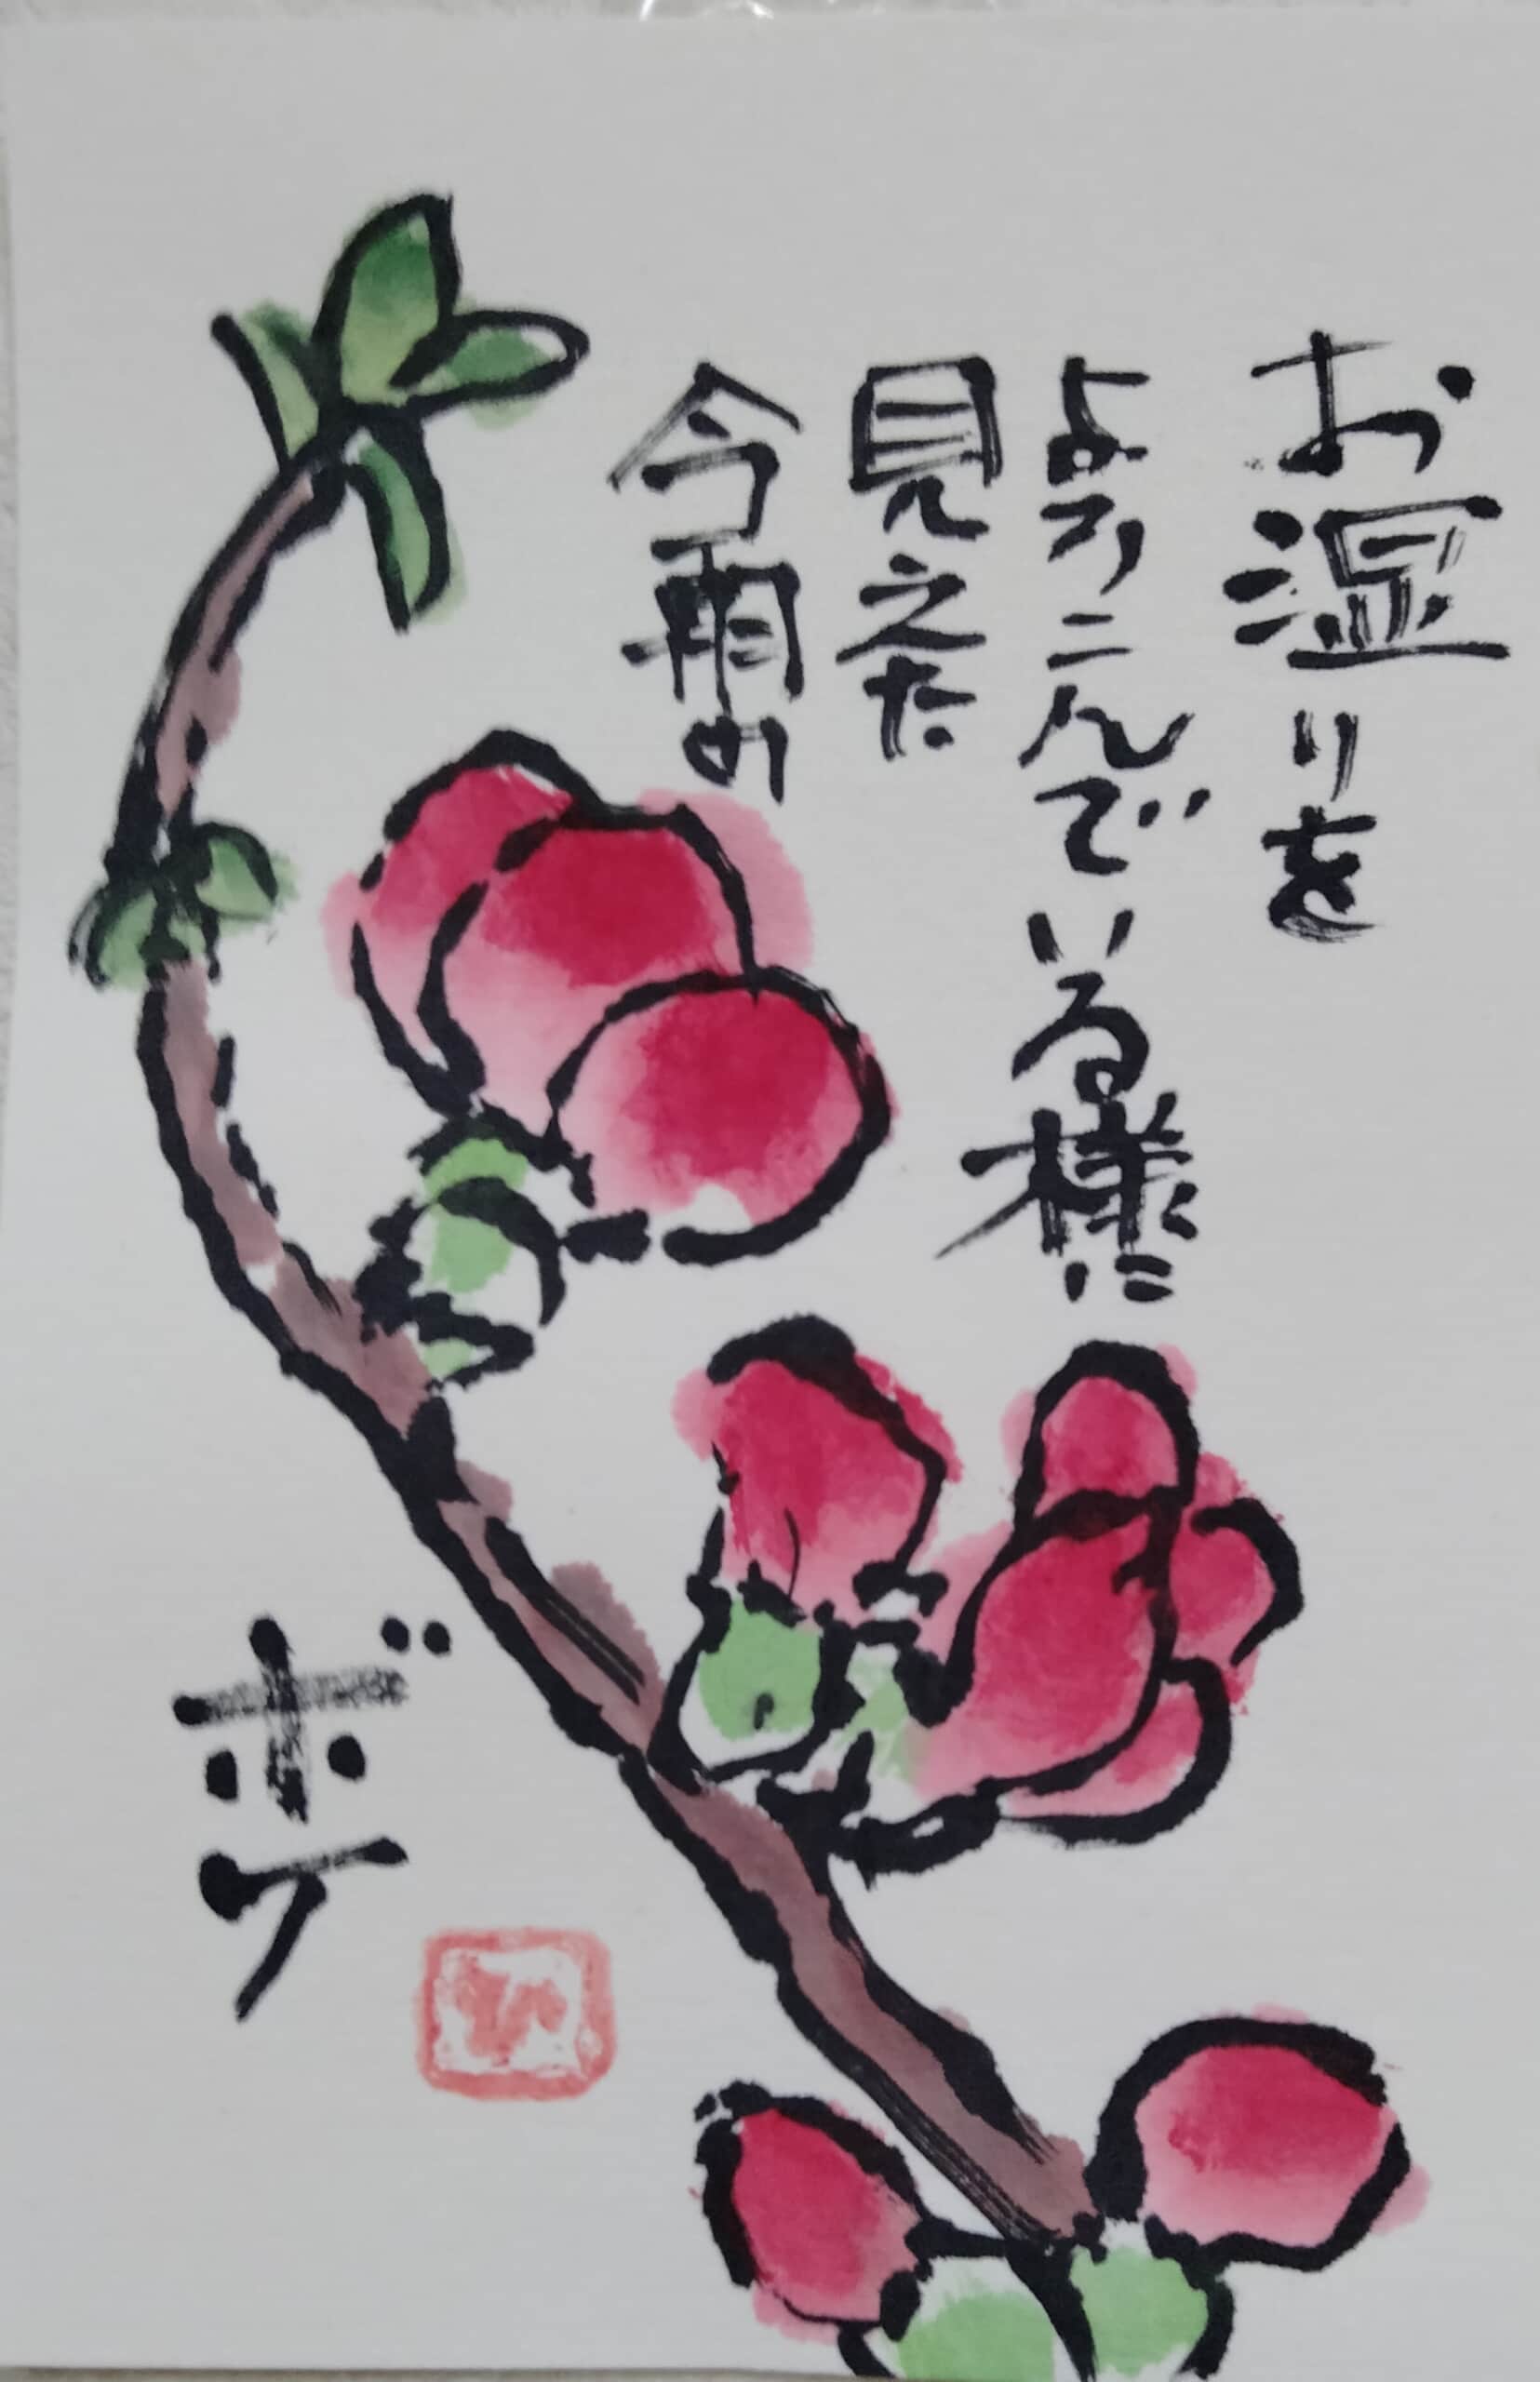 お湿りを
よろこんでいる様に
見えた
今朝の
ボケ